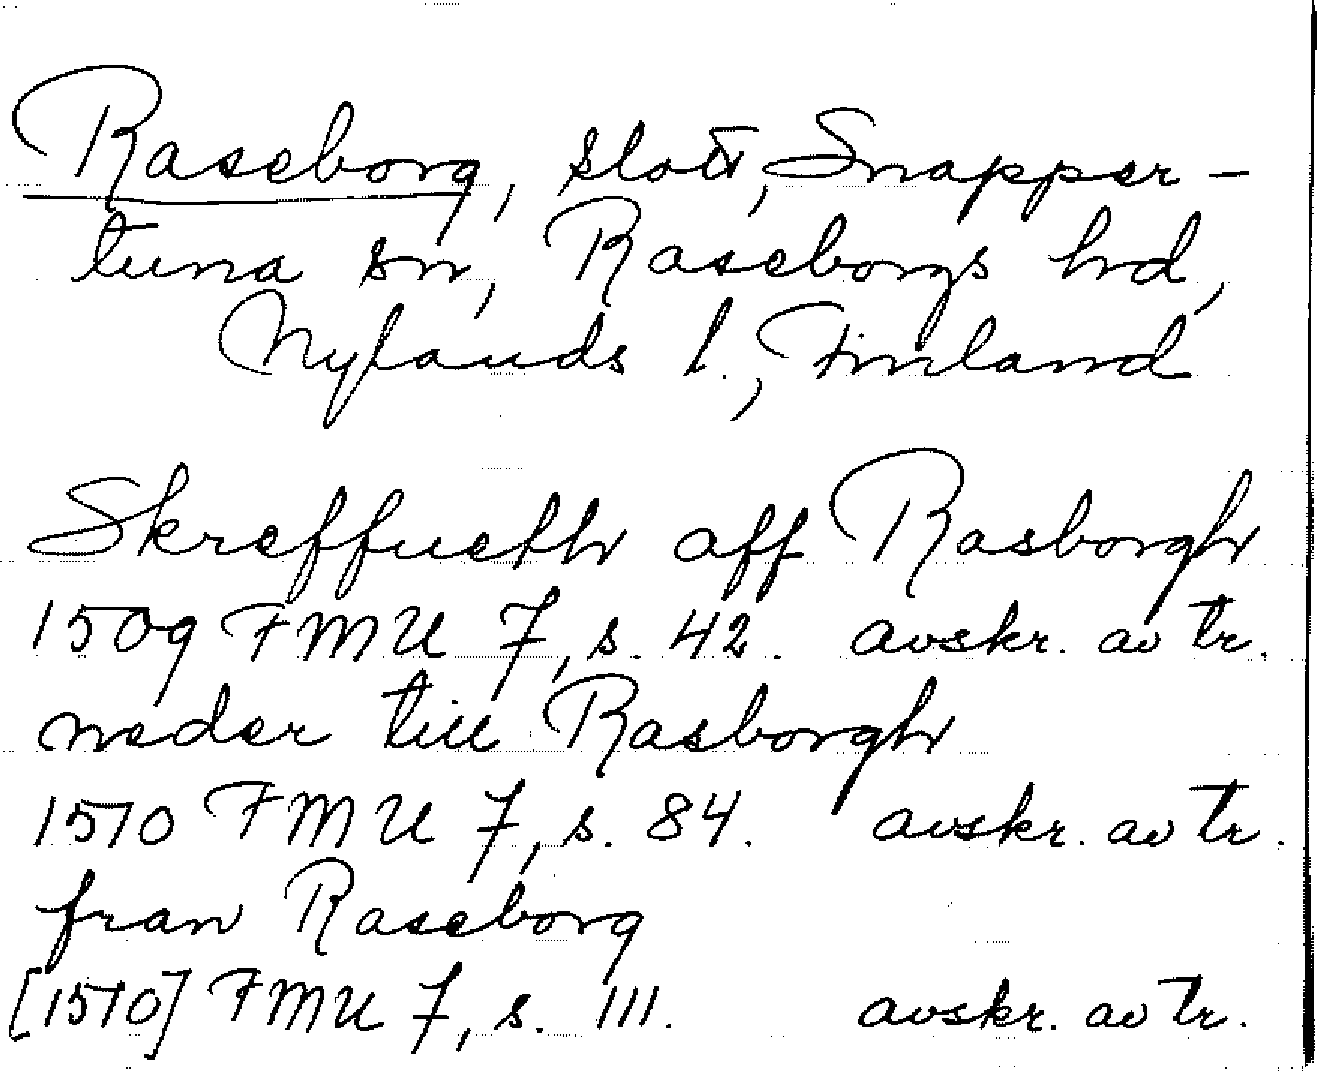 Raseborg, slott, Snapper-
tuna sn, Raseborgs hrd,
Nylands l., Finland
Skreffueth aff Rasborgh
1509 FMU 7, s. 42. avskr. av tr.
neder till Rasborgh
1510 FMU 7, s. 84. avskr. av tr.
fran Raseborg
[1510] FMU 7, s. 111. avskr. av tr.